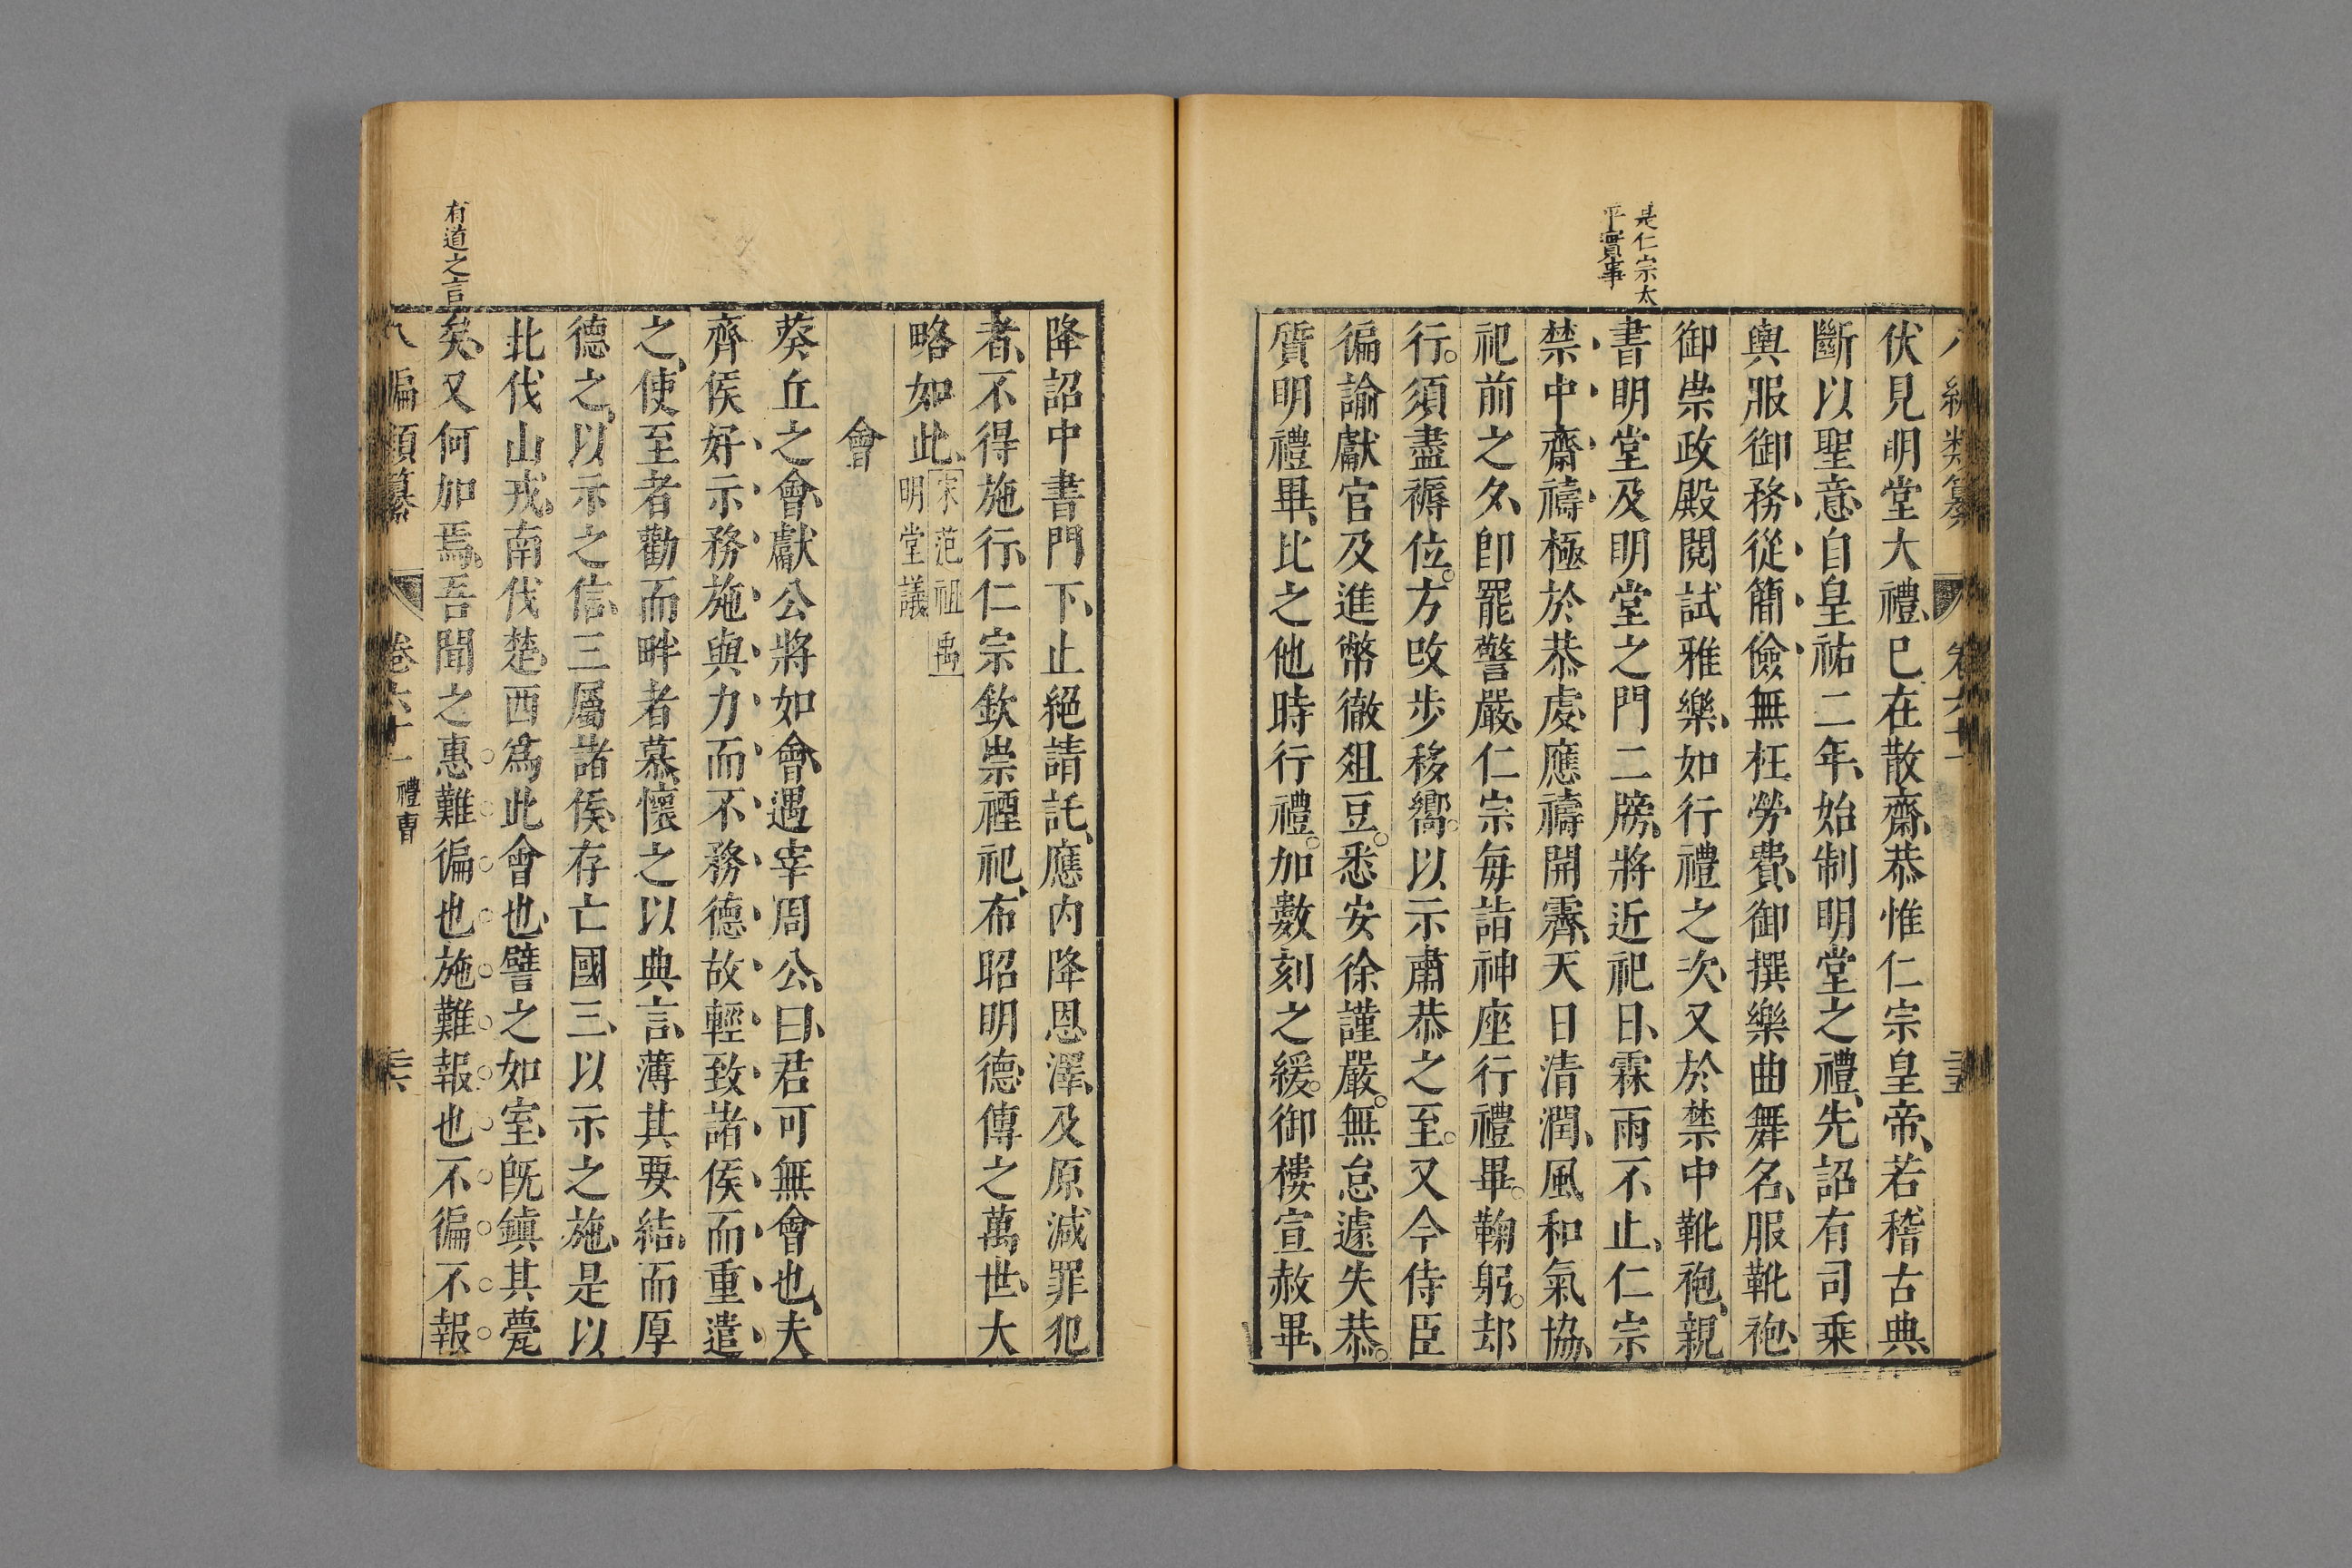 八編類纂 卷六十一 三五
是仁宗太
平實事
伏見明堂大禮已在散齋恭惟仁宗皇帝若稽古典
斷以聖意自皇祐二年始制明堂之禮先詔有司乘
輿服御務從簡儉無枉勞費御撰樂曲舞名服靴袍
御崇政殿閱試雅樂如行禮之次又於禁中靴袍親
書明堂及明堂之門二牓將近祀日霖雨不止仁宗
禁中齋禱極於恭虔應禱開霽天日清潤風和氣協
祀前之夕卽罷警嚴仁宗每詣神座行禮畢鞠躬却
行須盡褥位方改步移嚮以示肅恭之至又令侍臣
徧諭獻官及進幣徹俎豆悉安徐謹嚴無怠遽失恭
質明禮畢比之他時行禮加數刻之緩御樓宣赦畢
降詔中書門下止絕請託應內降恩澤及原減罪犯
者不得施行仁宗欽崇禋祀布昭明德傳之萬世大
略如此 宋范祖禹
明堂議
會
葵丘之會獻公將如會遇宰周公曰君可無會也夫
齊侯好示務施與力而不務德故輕致諸侯而重遣
之使至者勸而畔者慕懷之以典言薄其要結而厚
德之以示之信三屬諸侯存亡國三以示之施是以
北伐山戎南伐楚西爲此會也譬之如室旣鎮其甍
矣又何加焉吾聞之惠難徧也施難報也不徧不報
有道之言
八編類纂 卷六十一 禮曹 三六